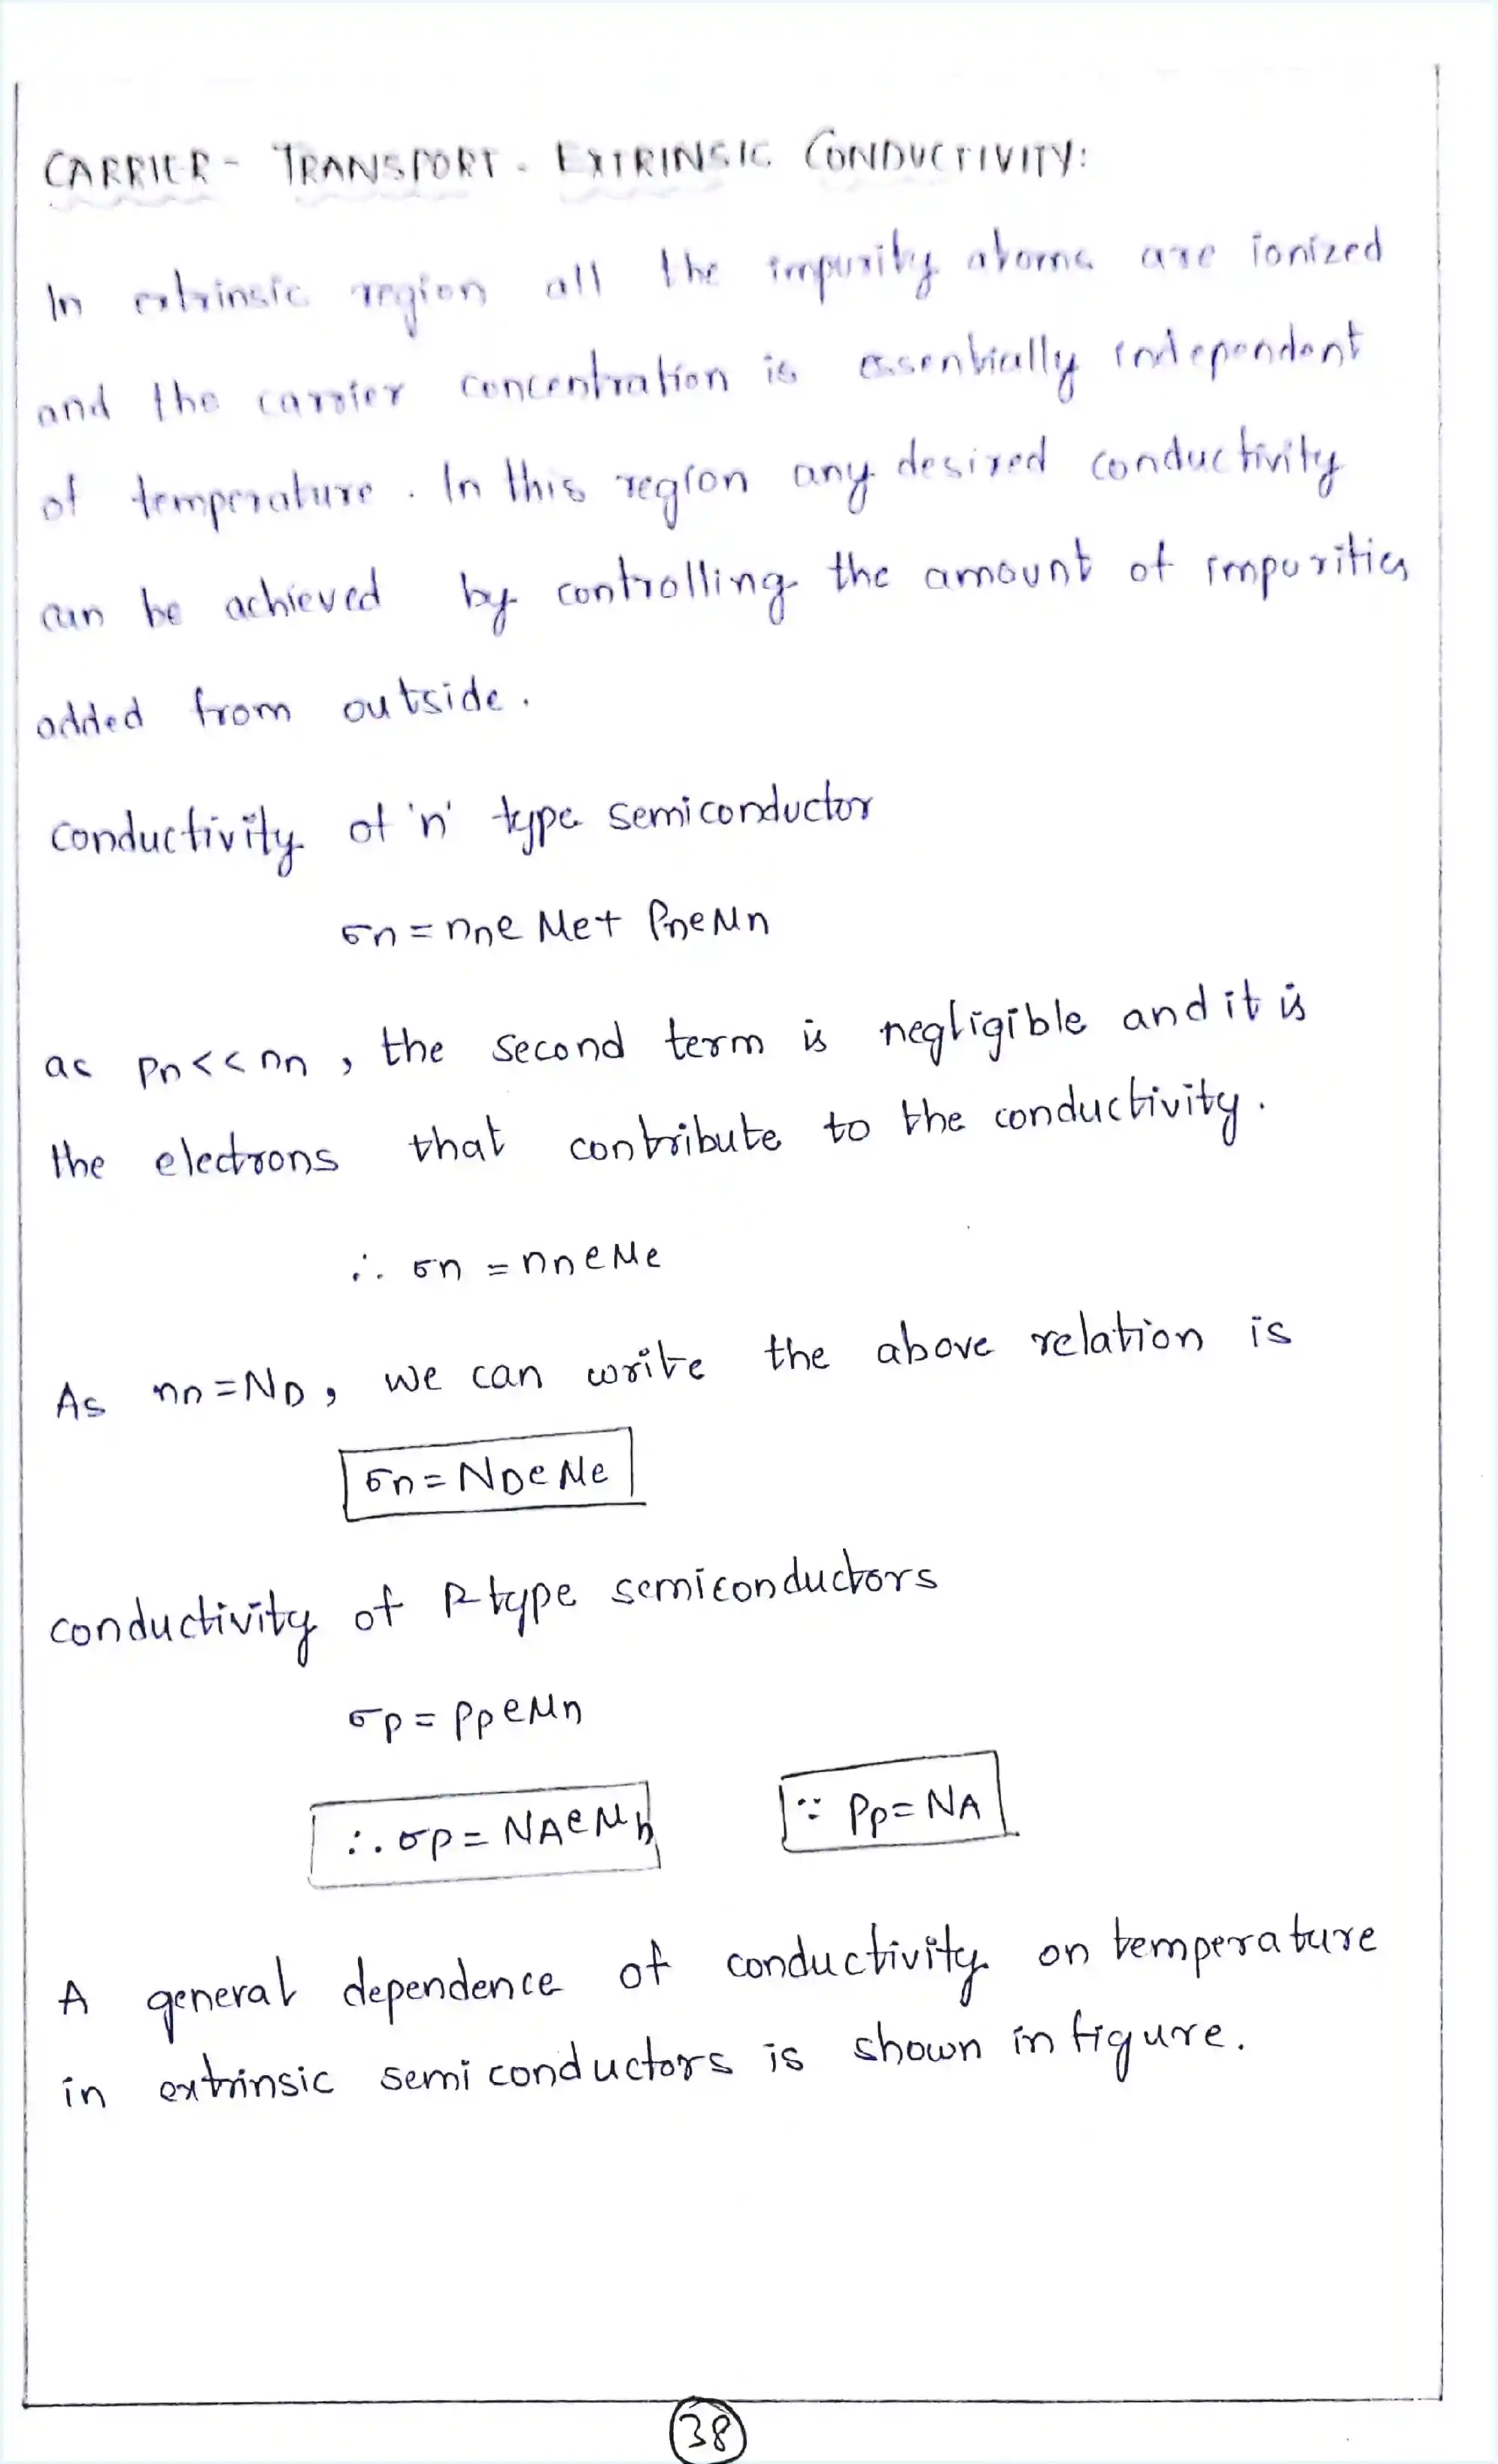 CARRIER - TRANSPORT - EXTRINSIC CONDUCTIVITY:
In extrinsic region all the impurity atoms are ionized
and the carrier concentration is essentially independent
of temperature. In this region any desired conductivity
can be achieved by controlling the amount of impurities
added from outside.
conductivity of 'n' type semiconductor
σn = nne μe + Pneμn
as Pn << nn, the second term is negligible and it is
the electrons that contribute to the conductivity.
∴ σn = nneμe
As nn = ND, we can write the above relation is
σn = NDeμe
conductivity of P-type semiconductors
σp = Ppeμn
∴ σp = NAeμh ∵ Pp = NA
A general dependence of conductivity on temperature
in extrinsic semiconductors is shown in figure.
38